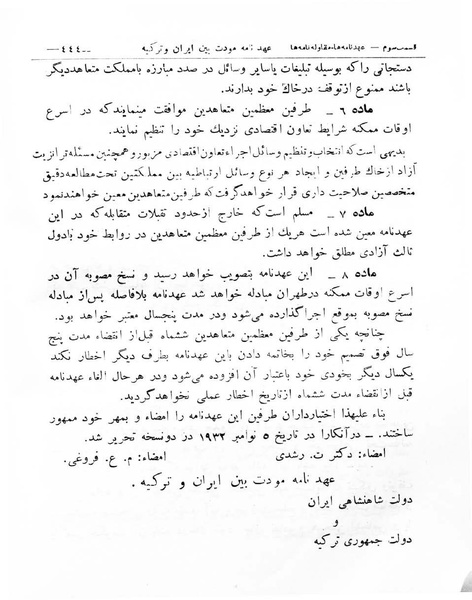 قسمت سوم — عهدنامه‌ها، مقاوله‌نامه‌ها عهدنامه مودت بین ایران و ترکیه —۴۴۴—
دستجاتی را که بوسیله تبلیغات یا سایر وسائل در صدد مبارزه با مملکت متعاهد دیگر
باشند ممنوع از توقف در خاک خود بدارند.
ماده ۶ — طرفین معظمین متعاهدین موافقت مینمایند که در اسرع
اوقات ممکنه شرایط تعاون اقتصادی نزدیک خود را تنظیم نمایند.
بدیهی است که انتخاب و تنظیم وسائل اجراء تعاون اقتصادی مزبور و همچنین مسئله ترانزیت
آزاد از خاک طرفین و ایجاد هر نوع وسائل ارتباطیه بین مملکتین تحت مطالعه دقیق
متخصصین صلاحیت داری قرار خواهد گرفت که طرفین متعاهدین معین خواهند نمود
ماده ۷ — مسلم است که خارج از حدود تقبلات متقابله که در این
عهدنامه معین شده است هر یک از طرفین معظمین متعاهدین در روابط خود با دول
ثالث آزادی مطلق خواهد داشت.
ماده ۸ — این عهدنامه بتصویب خواهد رسید و نسخ مصوبه آن در
اسرع اوقات ممکنه در طهران مبادله خواهد شد عهدنامه بلافاصله پس از مبادله
نسخ مصوبه بموقع اجرا گذارده می‌شود و در مدت پنجسال معتبر خواهد بود.
چنانچه یکی از طرفین معظمین متعاهدین ششماه قبل از انقضاء مدت پنج
سال فوق تصمیم خود را بخاتمه دادن باین عهدنامه بطرف دیگر اخطار نکند
یکسال دیگر بخودی خود باعتبار آن افزوده می‌شود و در هر حال الغاء عهدنامه
قبل از انقضاء مدت ششماه از تاریخ اخطار عملی نخواهد گردید.
بناء علیهذا اختیارداران طرفین این عهدنامه را امضاء و بمهر خود ممهور
ساختند. — در آنکارا در تاریخ ۵ نوامبر ۱۹۳۲ در دو نسخه تحریر شد.
امضاء: دکتر ت. رشدی امضاء: م. ع. فروغی.
عهدنامه مودت بین ایران و ترکیه.
دولت شاهنشاهی ایران
و
دولت جمهوری ترکیه